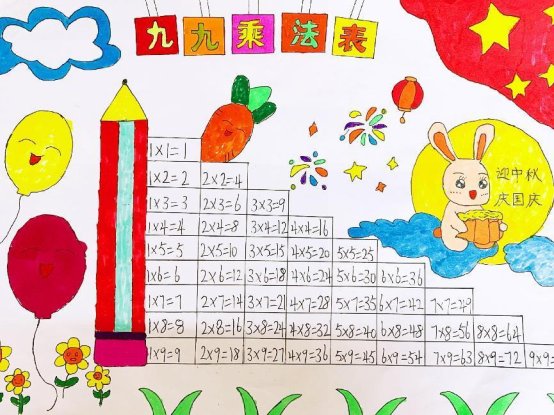 九九乘法表
1×1=1
1×2=2 2×2=4
1×3=3 2×3=6 3×3=9
1×4=4 2×4=8 3×4=12 4×4=16
1×5=5 2×5=10 3×5=15 4×5=20 5×5=25
1×6=6 2×6=12 3×6=18 4×6=24 5×6=30 6×6=36
1×7=7 2×7=14 3×7=21 4×7=28 5×7=35 6×7=42 7×7=49
1×8=8 2×8=16 3×8=24 4×8=32 5×8=40 6×8=48 7×8=56 8×8=64
1×9=9 2×9=18 3×9=27 4×9=36 5×9=45 6×9=54 7×9=63 8×9=72 9×9=
迎中秋
庆国庆